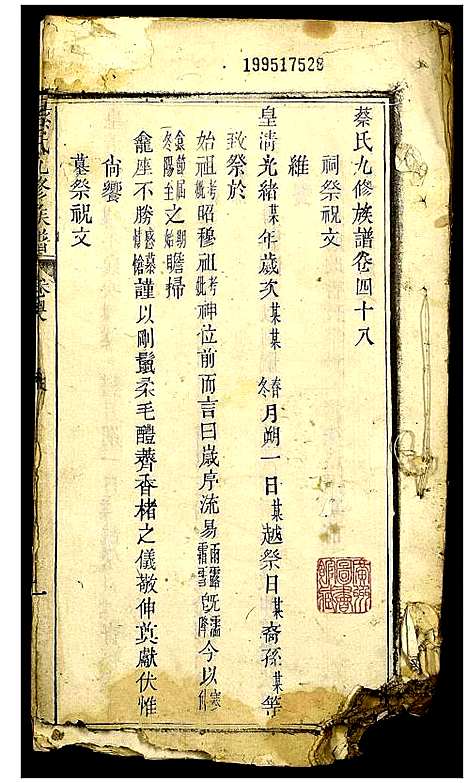 199517528
蔡氏九修族譜卷四十八
祠祭祝文
維
皇清光緒某年歲次某某春冬月朔一日某越祭日某裔孫某等
致祭於
始祖考妣昭穆祖考妣神位前而言曰歲序流易雨露既濡霜雪降今以
之期始明詹掃
龕座不勝感慕情愴謹以剛鬣柔毛醴薺香楮之儀敬伸奠獻伏惟
尙饗
墓祭祝文
蔡氏九修族譜
廣州圖書館藏